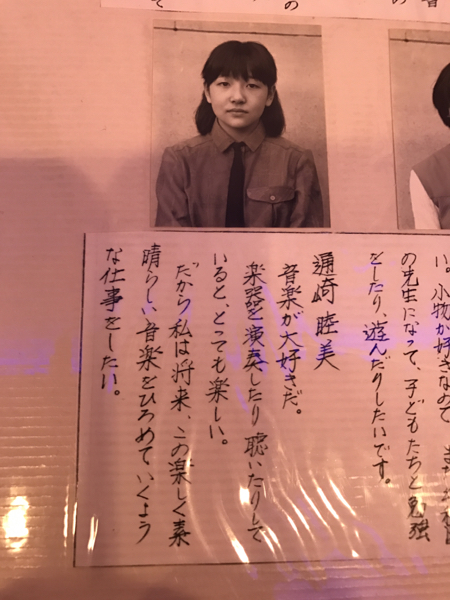 い。小物が好きなので
の先生になって、子どもたちと勉強
をしたり、遊んだりしたいです。
通崎睦美
音楽が大好きだ。
楽器を演奏したり聴いたりして
いると、とっても楽しい。
だから私は将来、この楽しく素
晴らしい音楽をひろめていくよう
な仕事をしたい。